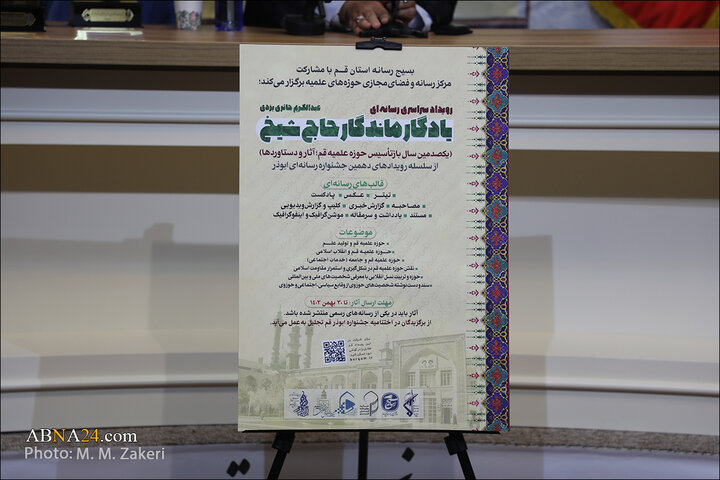 بسیج رسانه استان قم با مشارکت
مرکز رسانه و فضای مجازی حوزه‌های علمیه برگزار می‌کند؛
رویداد سراسری رسانه‌ای
عبدالکریم حائری یزدی
یادگار ماندگار حاج شیخ
(یکصدمین سال بازتأسیس حوزه علمیه قم؛ آثار و دستاوردها)
از سلسله رویدادهای دهمین جشنواره رسانه‌ای ابوذر
قالب‌های رسانه‌ای
• تیتر • عکس • پادکست
• مصاحبه • گزارش خبری • کلیپ و گزارش ویدیویی
• مستند • یادداشت و سرمقاله • موشن‌گرافیک و اینفوگرافیک
موضوعات
• حوزه علمیه قم و تولید علم
• حوزه علمیه قم و انقلاب اسلامی
• حوزه علمیه قم و جامعه (خدمات اجتماعی)
• نقش حوزه علمیه قم در شکل‌گیری و استمرار مقاومت اسلامی
• حوزه و تربیت نسل انقلابی با معرفی شخصیت‌های ملی و بین‌المللی
• سند و دست‌نوشته شخصیت‌های حوزوی از وقایع سیاسی، اجتماعی و حوزوی
مهلت ارسال آثار: تا ۳۰ بهمن ۱۴۰۳
آثار باید در یکی از رسانه‌های رسمی منتشر شده باشد.
از برگزیدگان در اختتامیه جشنواره ابوذر قم تجلیل به عمل می‌آید.
ABNA24.com
Photo: M. M. Zakeri